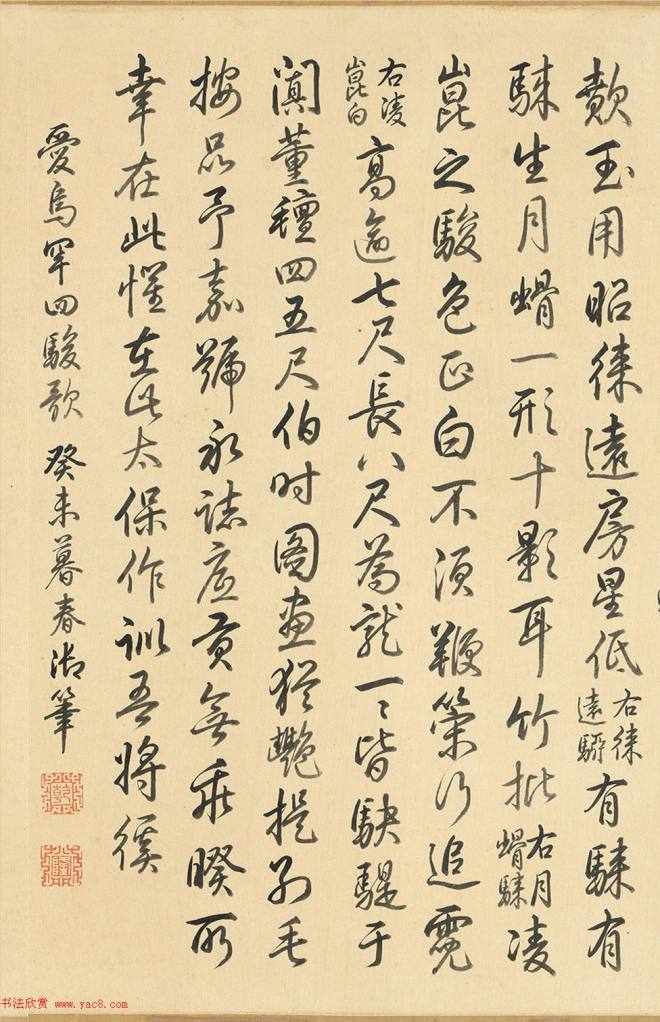 玉用昭徠遠房星低右徠遠騮有騋有
騋生月螖一形十影耳竹批右月螖騋凌
崑之駿色正白不須鞭策行追霓
右凌崑白高逾七尺長八尺為龍一一皆駃騠于
闐董氊四五尺伯时圖畫猶艷提別毛
按品予嘉號永誌底貢無乖暌所
幸在此懼在此太保作訓吾將徯
愛烏罕四駿歌 癸未暮春御筆
乾
隆
书法欣赏 www.yac8.com